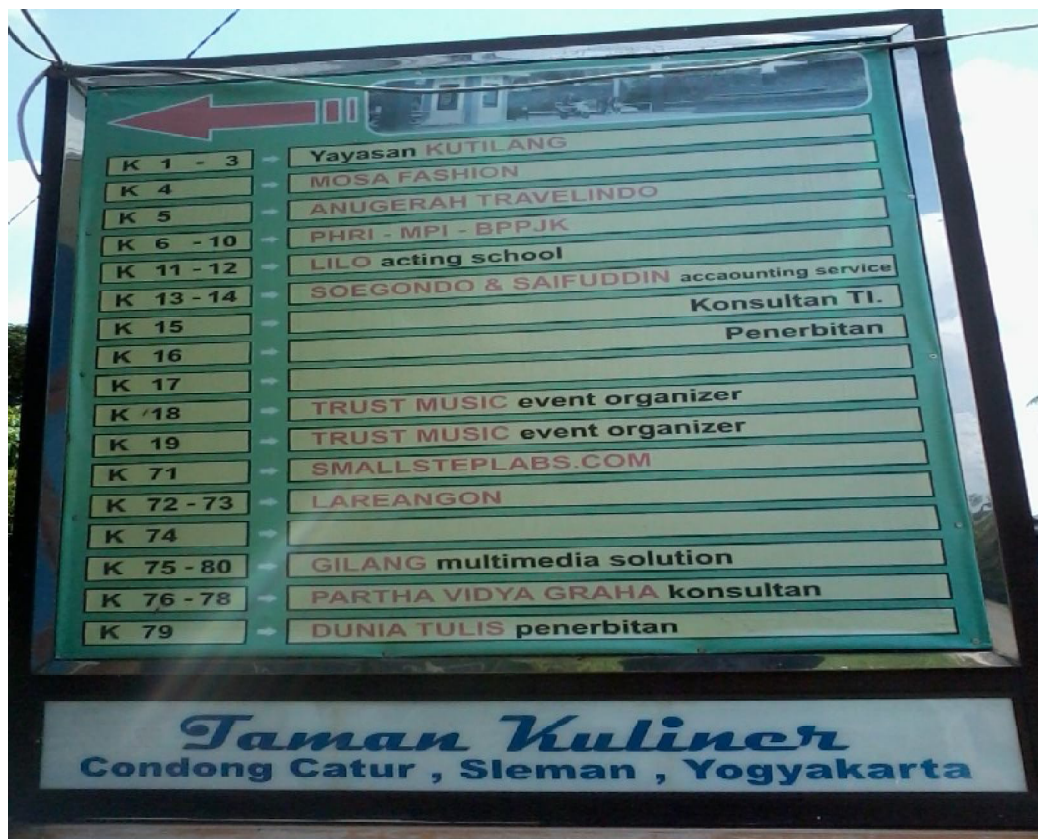 K 1 - 3 Yayasan KUTILANG
K 4 MOSA FASHION
K 5 ANUGERAH TRAVELINDO
K 6 - 10 PHRI - MPI - BPPJK
K 11 - 12 LILO acting school
K 13 - 14 SOEGONDO & SAIFUDDIN accaounting service
K 15 Konsultan TI.
K 16 Penerbitan
K 17
K 18 TRUST MUSIC event organizer
K 19 TRUST MUSIC event organizer
K 71 SMALLSTEPLABS.COM
K 72 - 73 LAREANGON
K 74
K 75 - 80 GILANG multimedia solution
K 76 - 78 PARTHA VIDYA GRAHA konsultan
K 79 DUNIA TULIS penerbitan
Taman Kuliner
Condong Catur , Sleman , Yogyakarta